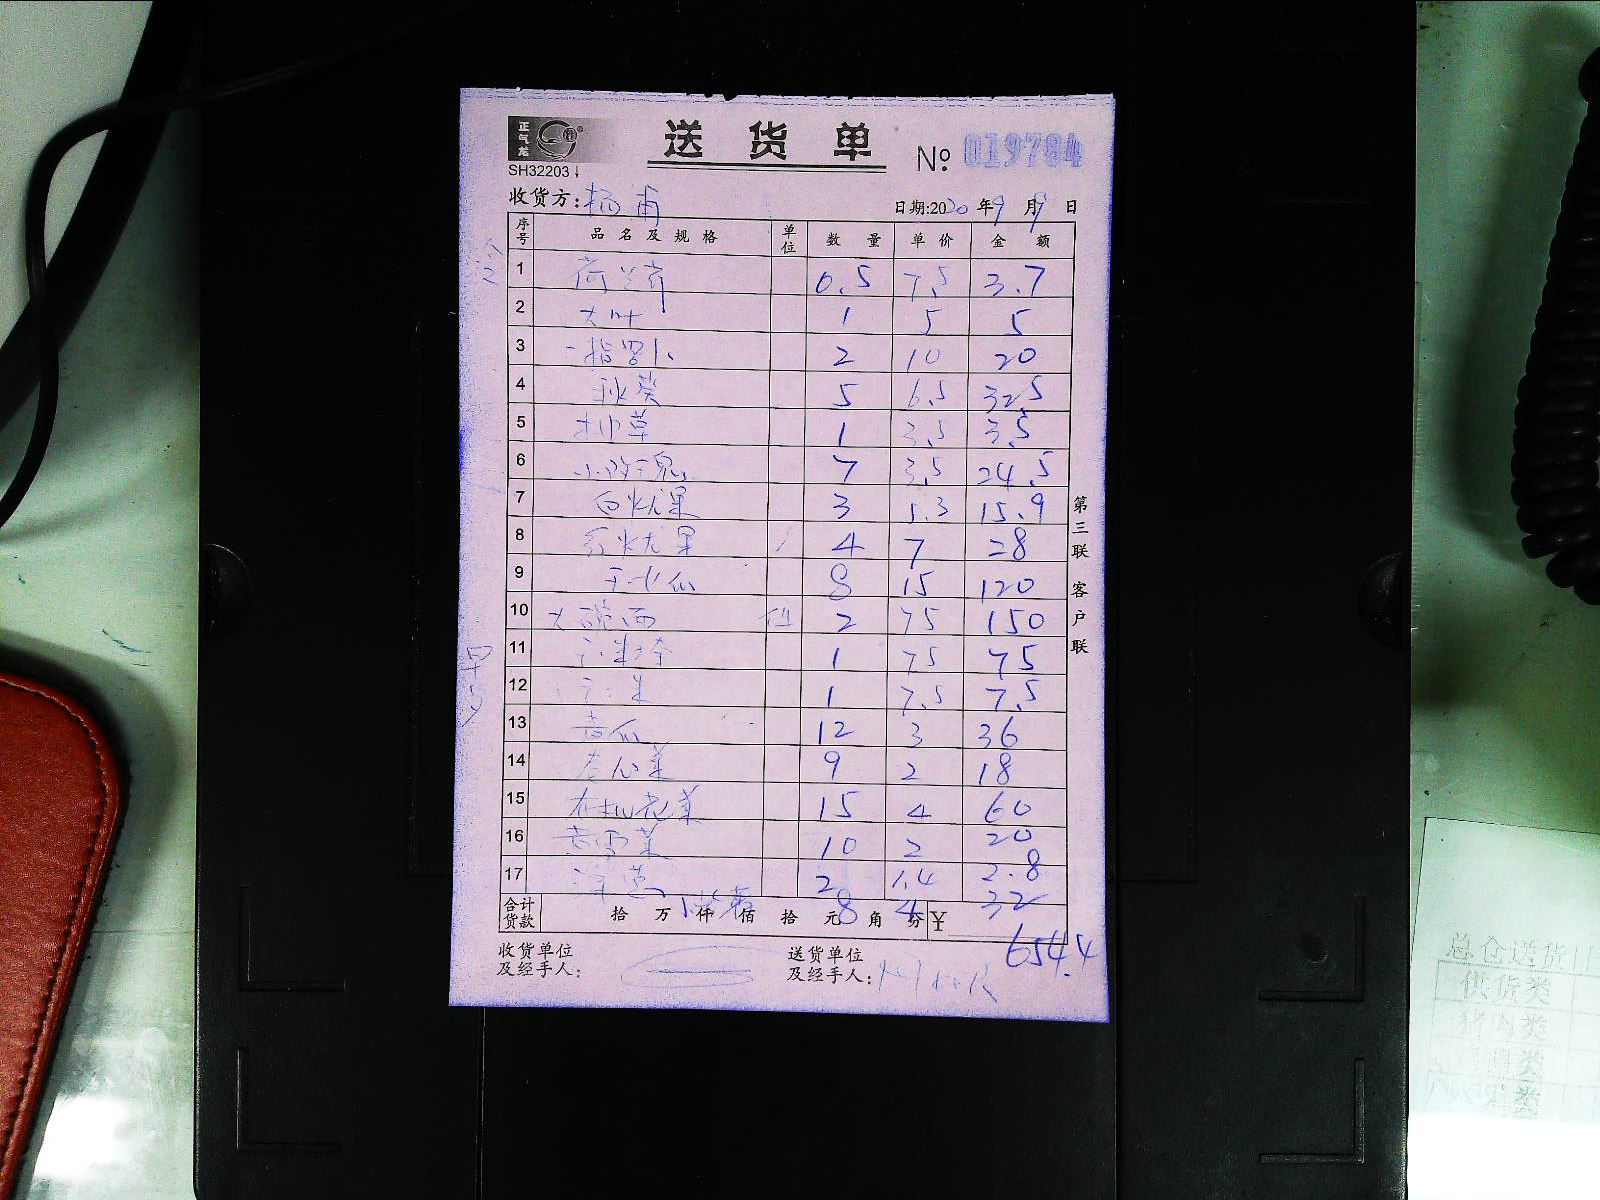 正气龙
送货单 № 019784
SH32203
收货方: 杨浦 日期:2020年9月9日
序号 品名及规格 单位 数量 单价 金额
1 荷兰芹 0.5 7.5 3.7
2 大叶 1 5 5
3 一指萝卜 2 10 20
4 秋葵 5 6.5 32.5
5 3.5 3.5
6 小玫瑰 7 3.5 24.5
7 白火尤果 3 5.3 15.9
8 红火尤果 4 7 28
9 8 15 120
10 2 75 150
11 1 75 75
12 1 7.5 7.5
13 黄瓜 12 3 36
14 9 2 18
15 花菜 15 4 60
16 10 2 20
17 洋葱 2 1.4 2.8
8 4 32
合计货款 拾 万 仟 佰 拾 元 角 分 ¥ 654.4
收货单位及经手人:
送货单位及经手人:
第三联 客户联
总仓送货
供货类
猪肉类
类
类